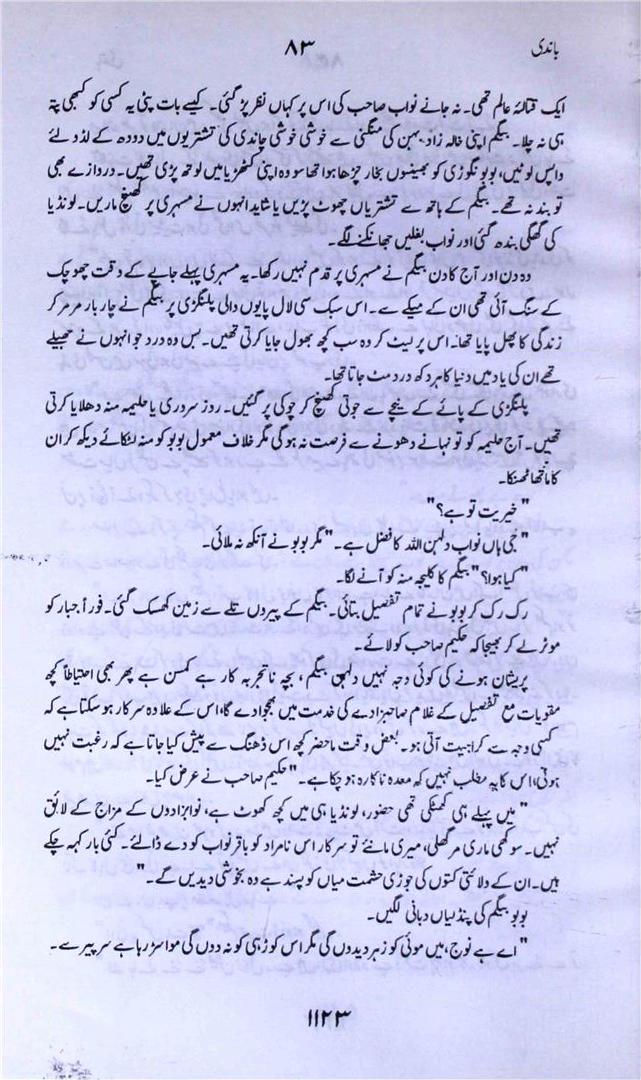 باندی
۸۳
ایک قتالۂ عالم تھی۔ نہ جانے نواب صاحب کی اس پر کہاں نظر پڑ گئی۔ کیسے بات پٹی یہ کسی کو کبھی پتہ
ہی نہ چلا۔ بیگم اپنی خالہ زاد بہن کی منگنی سے خوشی خوشی چاندی کی تشتریوں میں دودھ کے لڈو لئے
واپس لوٹیں، بوبو نگوڑی کو بھینسوں بخار چڑھا ہوا تھا سو وہ اپنی کٹھریا میں لوتھ پڑی تھیں۔ دروازے بھی
تو بند نہ تھے۔ بیگم کے ہاتھ سے تشتریاں چھوٹ پڑیں یا شاید انہوں نے مسہری پر کھینچ ماریں۔ لونڈیا
کی گھگی بندھ گئی اور نواب بغلیں جھانکنے لگے۔
وہ دن اور آج کا دن بیگم نے مسہری پر قدم نہیں رکھا۔ یہ مسہری پہلے جاپے کے وقت چھوچک
کے سنگ آئی تھی ان کے میکے سے۔ اس سبک سی لال پایوں والی پلنگڑی پر بیگم نے چار بار مر مر کر
زندگی کا پھل پایا تھا۔ اس پر لیٹ کر وہ سب کچھ بھول جایا کرتی تھیں۔ بس وہ درد جو انہوں نے جھیلے
تھے ان کی یاد میں دنیا کا ہر دکھ درد مٹ جاتا تھا۔
پلنگڑی کے پائے کے نیچے سے جوتی کھینچ کر چوکی پر گئیں۔ روز سروری یا حلیمہ منہ دھلایا کرتی
تھیں۔ آج حلیمہ کو تو نہانے دھونے سے فرصت نہ ہوگی مگر خلاف معمول بوبو کو منہ لٹکائے دیکھ کر ان
کا ماتھا ٹھنکا۔
"خیریت تو ہے؟"
"جی ہاں نواب دلہن اللہ کا فضل ہے۔" مگر بوبو نے آنکھ نہ ملائی۔
"کیا ہوا؟" بیگم کا کلیجہ منہ کو آنے لگا۔
رک رک کر بوبو نے تمام تفصیل بتائی۔ بیگم کے پیروں تلے سے زمین کھسک گئی۔ فوراً جبار کو
موٹر لے کر بھیجا کہ حکیم صاحب کو لائے۔
پریشان ہونے کی کوئی وجہ نہیں دلہن بیگم، بچہ ناتجربہ کار ہے کمسن ہے پھر بھی احتیاطاً کچھ
مقویات مع تفصیل کے غلام صاحبزادے کی خدمت میں بھجوا دے گا، اس کے علاوہ سرکار ہو سکتا ہے کہ
کسی وجہ سے کراہیت آتی ہو۔ بعض وقت ماحضر کچھ اس ڈھنگ سے پیش کیا جاتا ہے کہ رغبت نہیں
ہوتی، اس کا یہ مطلب نہیں کہ معدہ ناکارہ ہو چکا ہے۔" حکیم صاحب نے عرض کیا۔
"میں پہلے ہی کھٹکی تھی حضور، لونڈیا ہی میں کچھ کھوٹ ہے، نوابزادوں کے مزاج کے لائق
نہیں۔ سوکھی ماری مرگھلی، میری مانئے تو سرکار اس نامراد کو باقر نواب کو دے ڈالئے۔ کئی بار کہہ چکے
ہیں۔ ان کے ولائتی کتوں کی جوڑی حشمت میاں کو پسند ہے وہ بخوشی دیدیں گے۔"
بوبو بیگم کی پنڈلیاں دبانی لگیں۔
"اے ہے نوج، میں موئی کو زہر دیدوں گی مگر اس کوڑھی کو نہ دوں گی موا سڑ رہا ہے سر پیر سے۔
۱۱۲۳